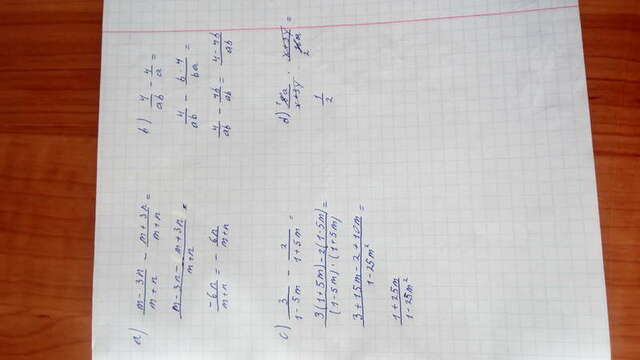 a) (m - 3n)/(m + n) - (m + 3n)/(m + n) =
(m - 3n - m + 3n)/(m + n) =
(-6n)/(m + n) = - 6n/(m + n)
b) 4/(ab) - 4/a =
4/(ab) - (b 4)/(ba)
4/(ab) - 4b/(ab) = (4 - 4b)/(ab)
c) 3/(1 - 5m) - 2/(1 + 5m) =
(3(1 + 5m) - 2(1 - 5m))/((1 - 5m) · (1 + 5m)) =
(3 + 15m - 2 + 10m)/(1 - 25m²) =
(1 + 25m)/(1 - 25m²)
d) a/(x + 3y) · (x + 3y)/2 =
1/2